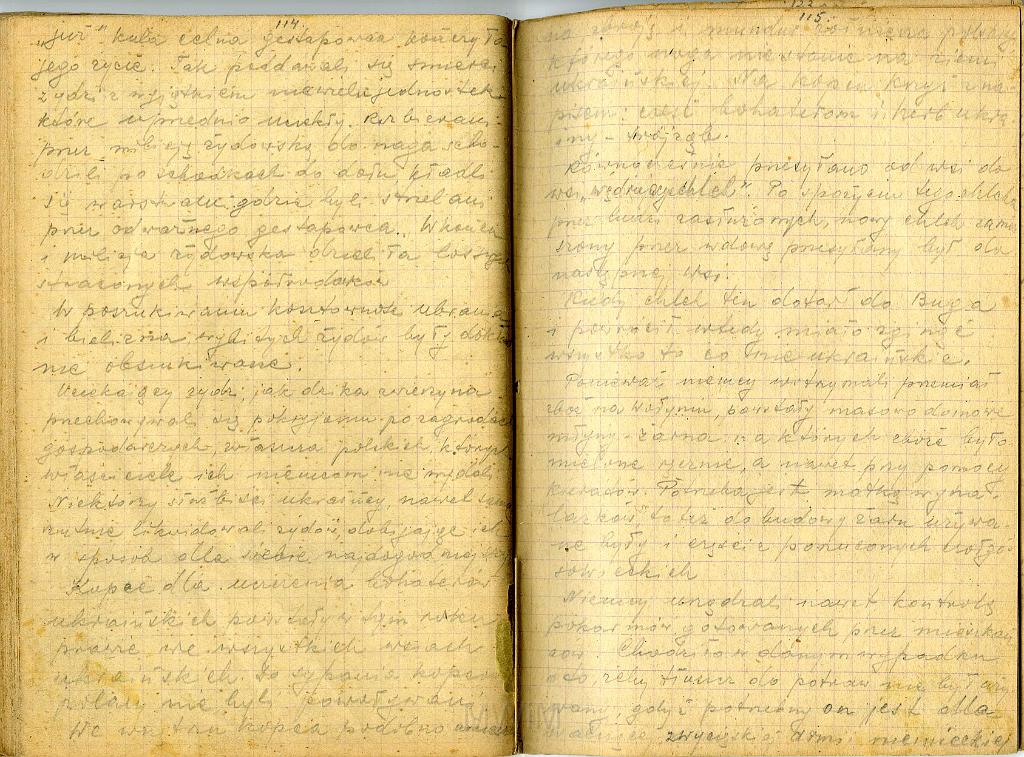 114.
„już" kula celna gestapowca kończyła
jego życie. Tak poddawali się śmierci
żydzi z wyjątkiem niewielu jednostek
które uprzednio uciekły. Rozbierani
przez milicję żydowską do naga scho-
dzili po schodkach do dołu kładli
się warstwami gdzie byli strzelani
przez odważnego gestapowca. W końcu
i milicja żydowska dzieliła losy
straconych współrodaków
W poszukiwaniu kosztowności ubrania
i bielizna wybitych żydów były dokład
nie obszukiwane.
Uciekający żydzi, jak dzika zwierzyna
przechowywali się pokryjomu po zagrodach
gospodarczych, zwłaszcza polskich, których
właściciele ich niemcom nie wydali
Niektórzy słabsi ukraińcy, nawet
likwidowali żydów, dobijając ich
w sposób dla siebie najdogodniejszy
Kopce dla uczczenia bohaterów
ukraińskich powstały w tym roku
prawie we wszystkich wsiach
ukraińskich. Do sypania kopców
polacy nie byli powoływani
We wnętrzu kopca podobno
115.
na zbroję i mundur żołnierza polskiego
którego noga nie stanie na ziemi
ukraińskiej. Na kopcu krzyż z na-
pisem: cześć bohaterom i herb ukra-
iny - trójząb.
Równocześnie przesyłano od wsi do
wsi „wędrujący chleb". Po spożyciu tego chleba
przez ludzi zasłużonych, nowy chleb zamie
szony przez wdowę przesyłany był do
następnej wsi.
Kiedy chleb ten dotarł do Buga
i powrócił wtedy miało zginąć
wszystko to co nie ukraińskie.
Ponieważ niemcy wstrzymali przemiał
zbóż na Wołyniu, powstały masowo domowe
młyny - żarna na których zboże było
mielone ręcznie, a nawet przy pomocy
kieratów. Potrzeba jest matką wyna-
lazków, toteż do budowy żaren używa-
ne były i części z porzuconych czołgów
sowieckich
Niemcy urządzali nawet kontrolę
pokarmów gotowanych przez mieszkań
ców. Chodziło w danym wypadku
o to, żeby tłuszcz do potraw nie był uży
wany, gdyż potrzebny on jest dla
walczącej zwycięskiej armi niemieckiej